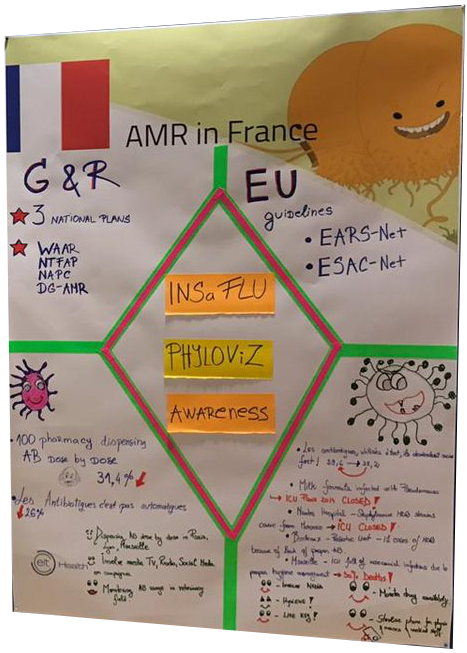 AMR in France
G & R
3 NATIONAL PLANS
WAAR
NTFAP
NAPC
DG-AMR
EU
guidelines
EARS-Net
ESAC-Net
INSaFLU
PHYLOViZ
AWARENESS
100 pharmacy dispensing
AB Dose by Dose
31,4%
Les Antibiotiques c'est pas automatiques
26%
Dispensing AB dose by dose in Paris,
Lyon, Marseille
Involve media TV, Radio, Social Media
on campagne
Monitoring AB usage in veterinary
field
eit Health
Les antibiotiques, utilisés à tort, ils deviendront moins
fort!
Milk formula infected with Pseudomonas
ICU Paris 2014 CLOSED!
Nantes Hospital -
came from Morocco → ICU CLOSED!
Bordeaux - Pediatric Unit - 12 cases of MDR
because of lack of proper AB.
Marseille - ICU full of nosocomial infections due to
proper hygiene management → 50% Deaths!
Involve Media
Hygiene!
Monitor drug